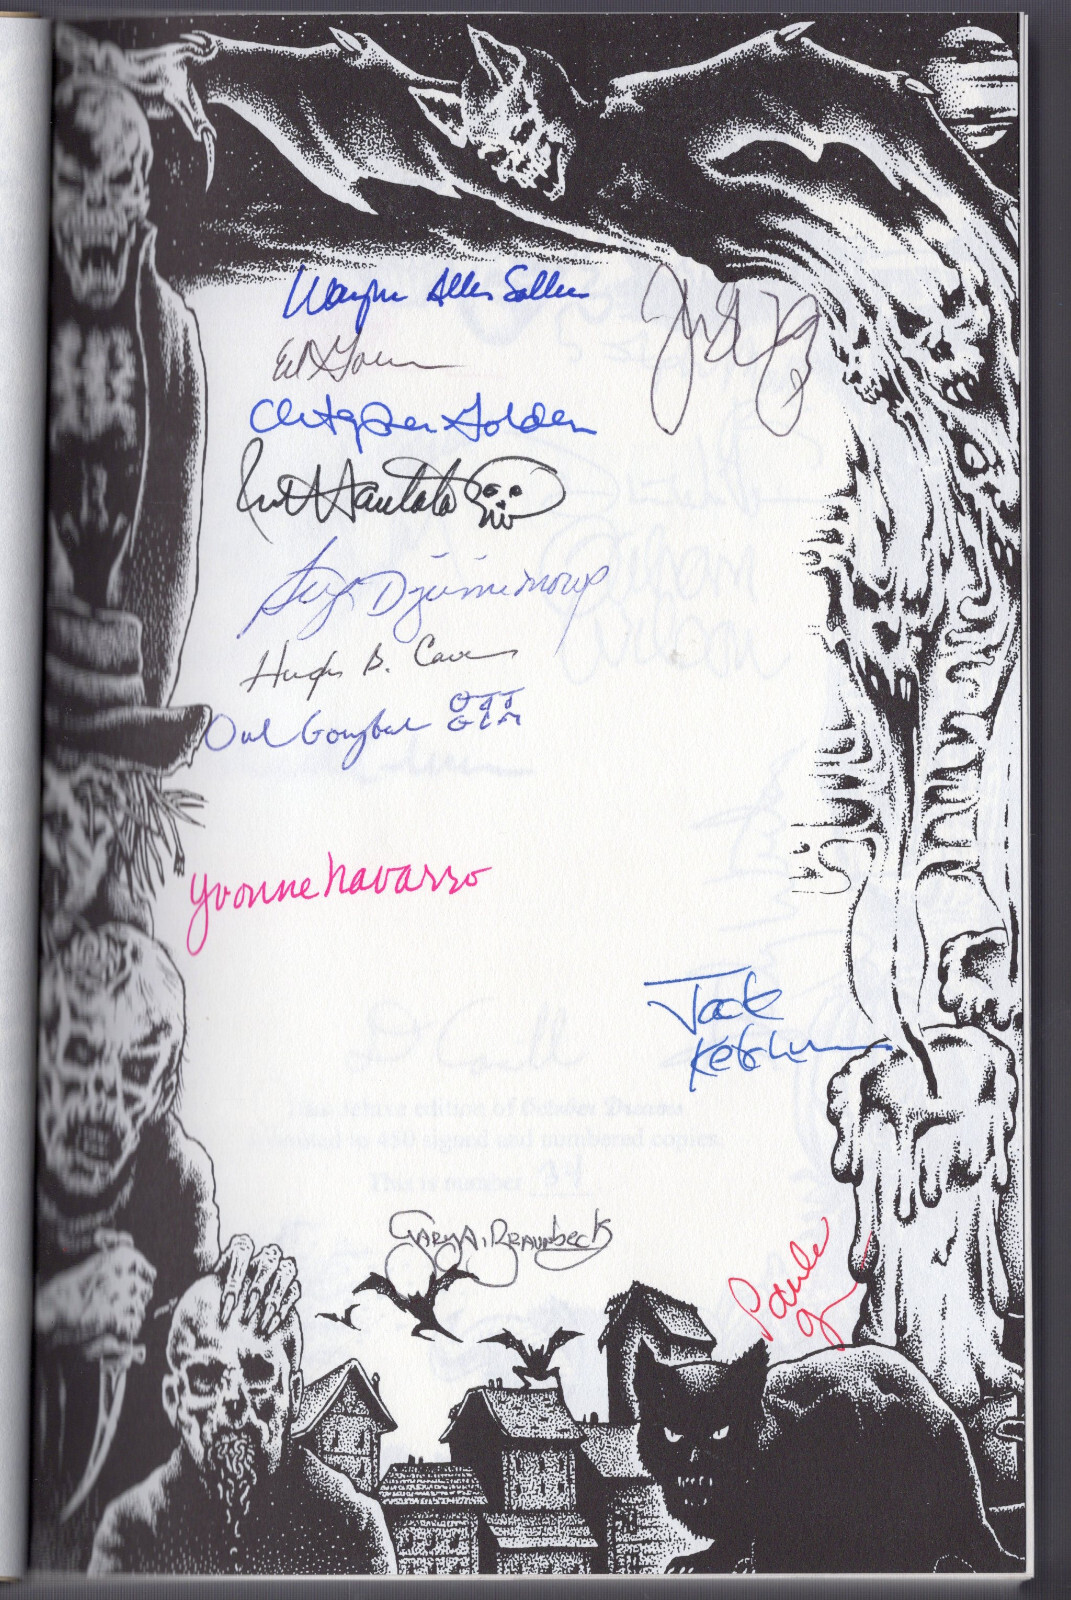 Wayne Allen Sallee
Ed Gorman
Christopher Golden
Rick Hautala
Stefan Dziemianowicz
Hugh B. Cave
Owl Goingback
Yvonne Navarro
Jack
Ketchum
This deluxe edition of October Dreams
is limited to 450 signed and numbered copies.
This is number 34
Gary A. Braunbeck
Paula